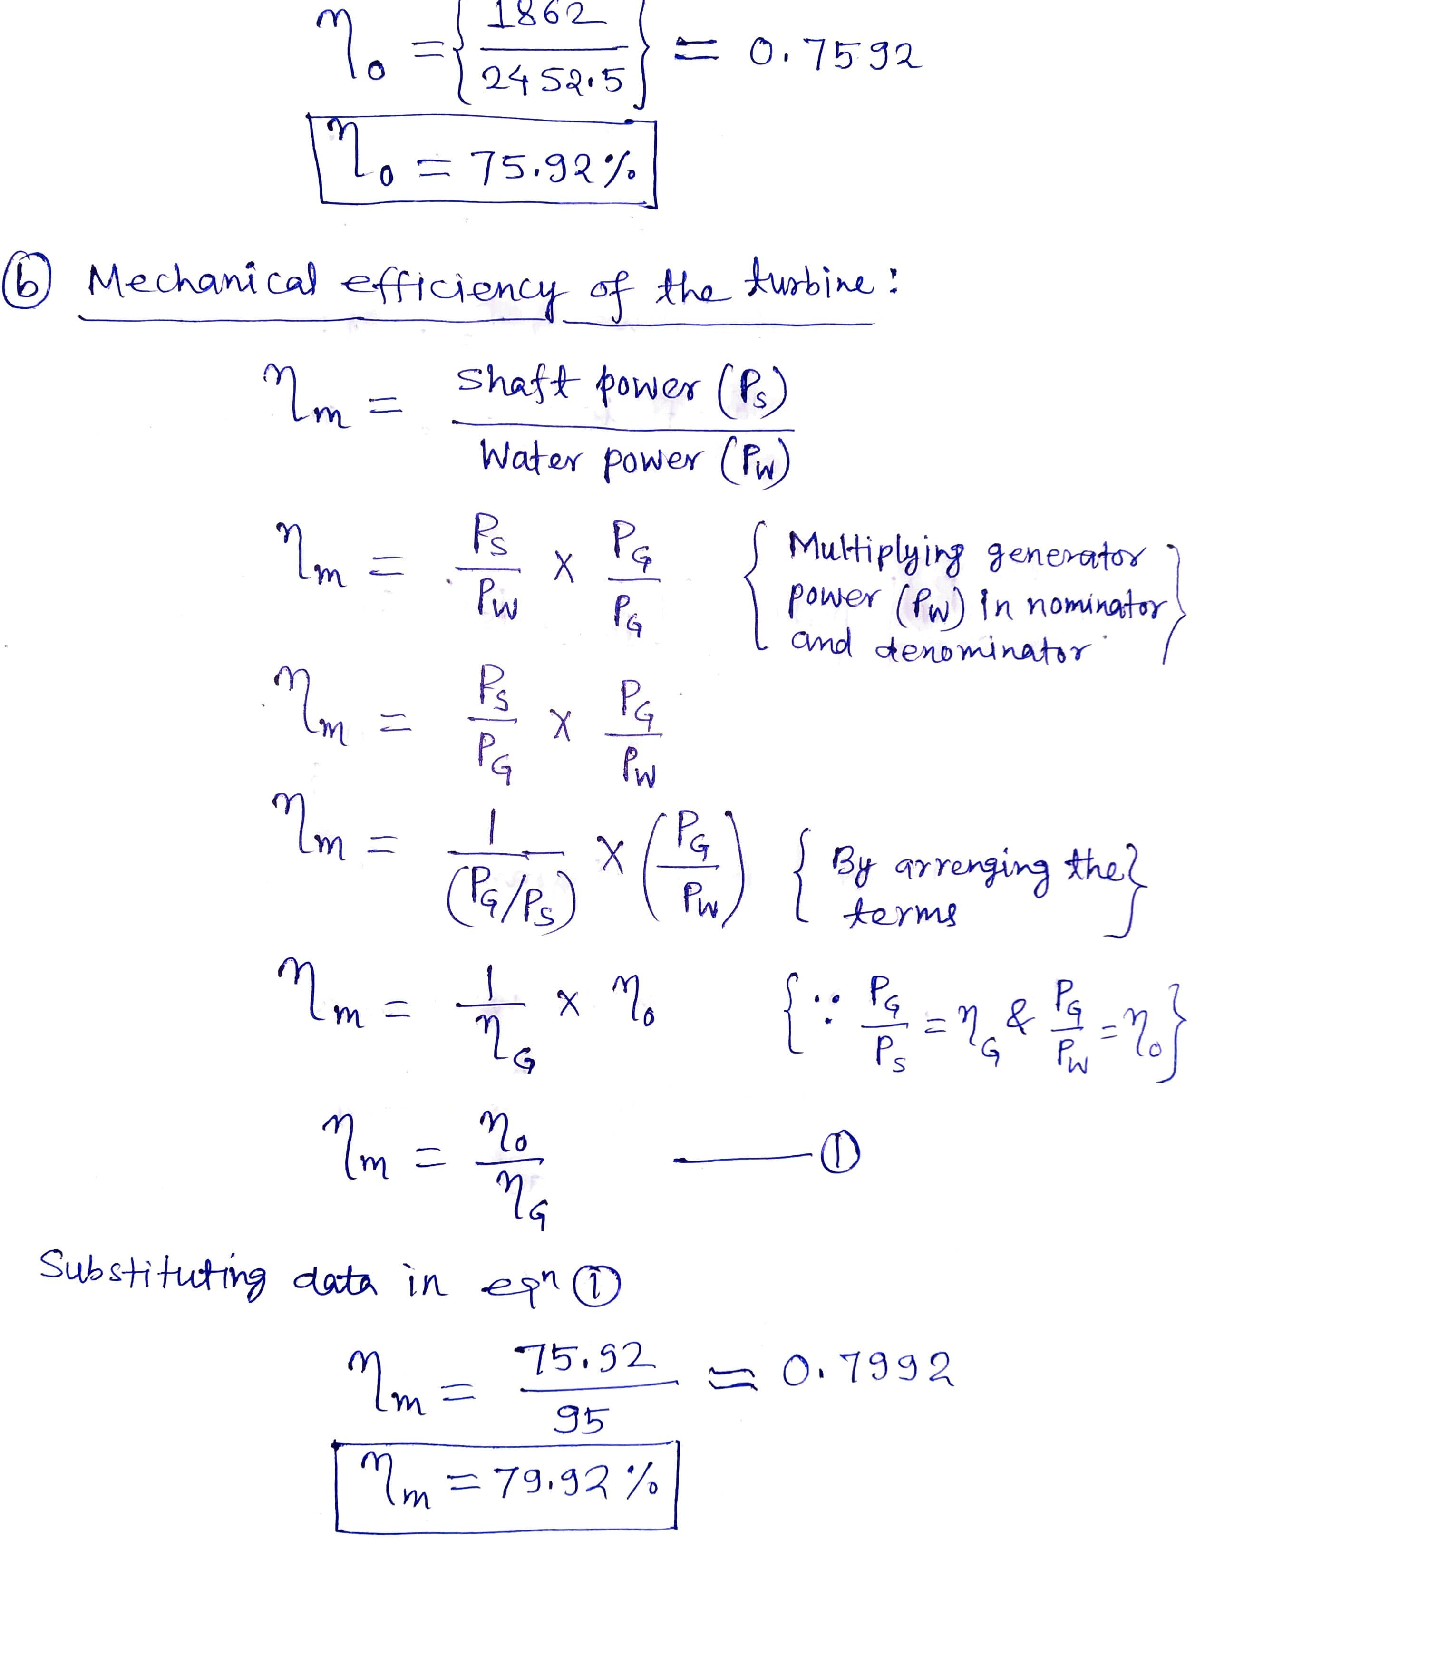 η₀ = { 1862 / 2452.5 } = 0.7592
η₀ = 75.92%
(b) Mechanical efficiency of the turbine:
ηm = Shaft power (Ps) / Water power (Pw)
ηm = Ps/Pw × PG/PG { Multiplying generator
power (Pw) in nominator
and denominator }
ηm = Ps/PG × PG/Pw
ηm = 1/(PG/Ps) × (PG/Pw) { By arrenging the
terms }
ηm = 1/ηG × η₀ { ∵ PG/Ps = ηG & PG/Pw = η₀ }
ηm = η₀/ηG —— ①
Substituting data in eqn ①
ηm = 75.92/95 = 0.7992
ηm = 79.92%